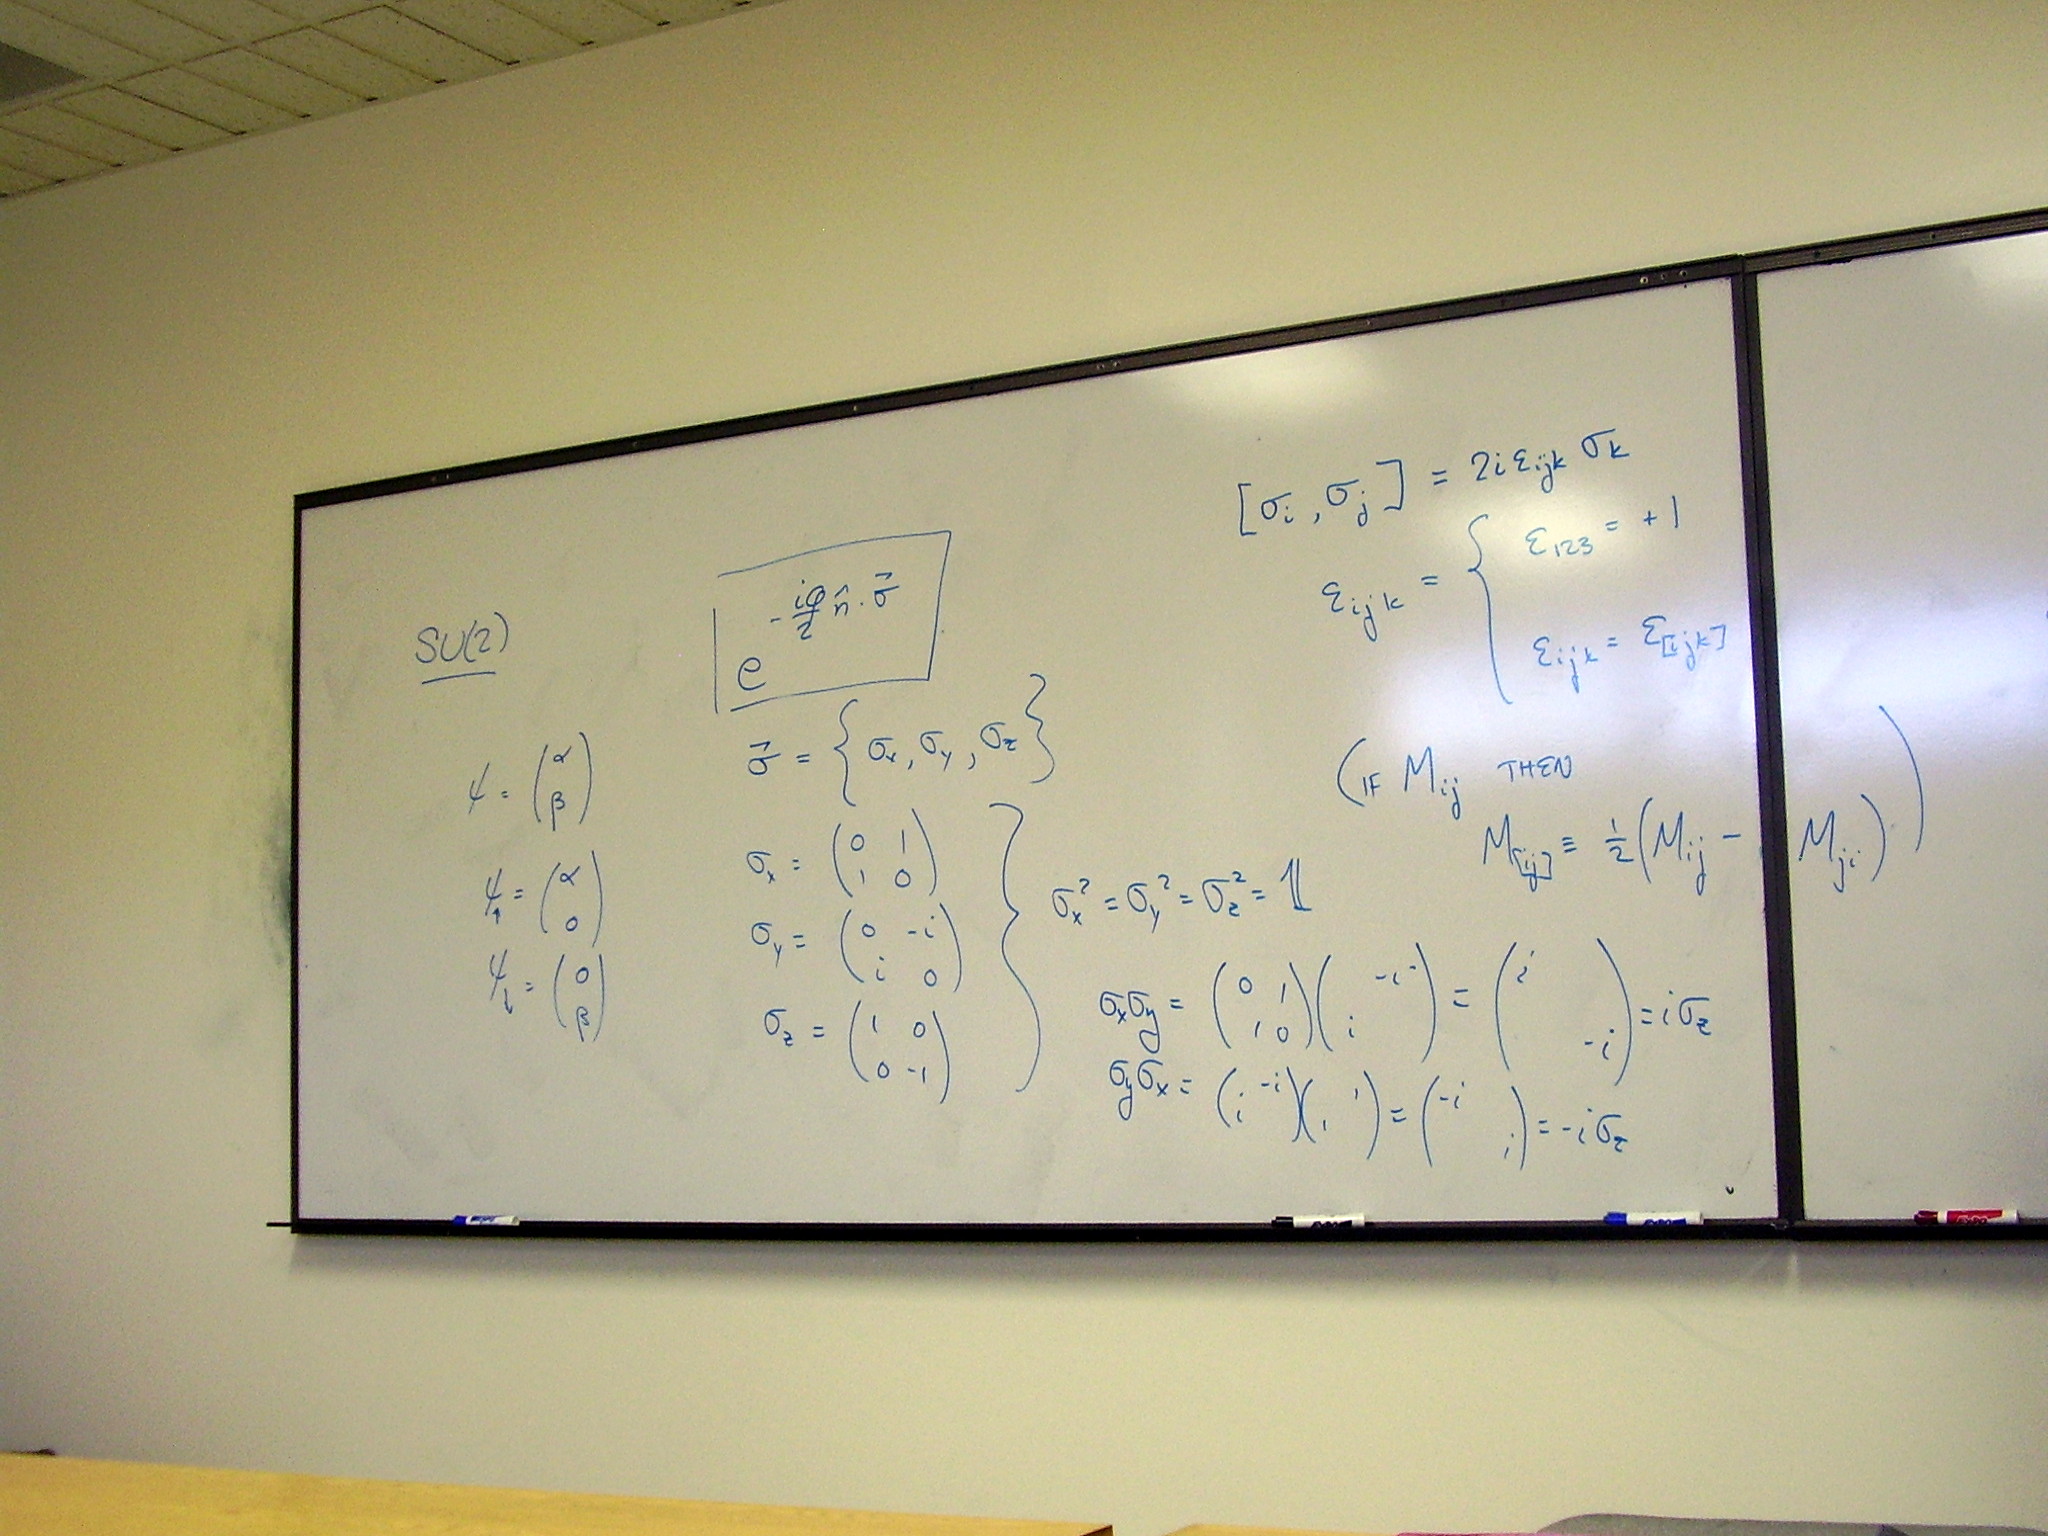 SU(2)
ψ = (α β)
ψ↑ = (α 0)
ψ↓ = (0 β)
e^{-iφ/2 n̂·σ⃗}
σ⃗ = {σx, σy, σz}
σx = (0 1
1 0)
σy = (0 -i
i 0)
σz = (1 0
0 -1)
σx² = σy² = σz² = 𝟙
σxσy = (0 1 1 0)( -i i ) = (i -i) = iσz
σyσx = ( -i i )( 1 1 ) = (-i i) = -iσz
[σi, σj] = 2iεijk σk
εijk = { ε123 = +1
εijk = ε[ijk]
(IF Mij THEN
M[ij] ≡ ½(Mij - Mji))